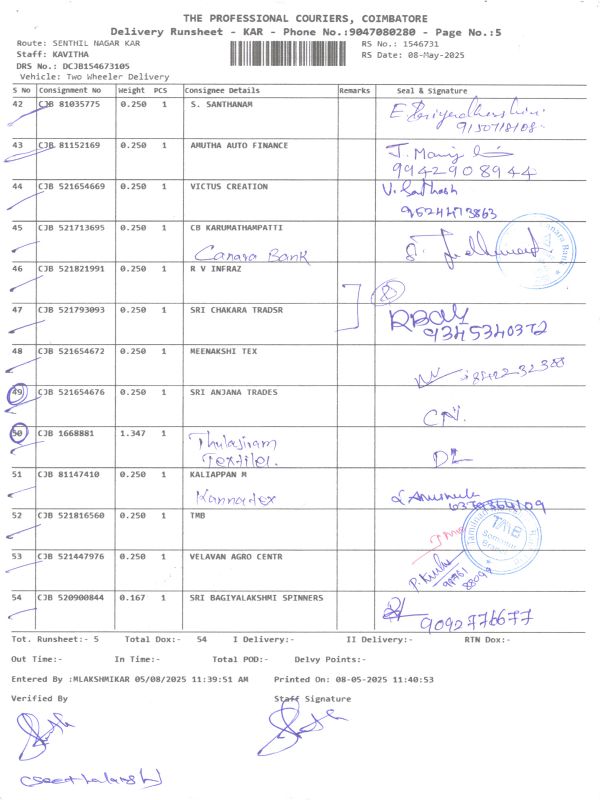 THE PROFESSIONAL COURIERS, COIMBATORE
Delivery Runsheet - KAR - Phone No.:9047080280 - Page No.:5
Route: SENTHIL NAGAR KAR
RS No.: 1546731
Staff: KAVITHA
RS Date: 08-May-2025
DRS No.: DCJB154673105
Vehicle: Two Wheeler Delivery
S No Consignment No Weight PCS Consignee Details Remarks Seal & Signature
42 CJB 81035775 0.250 1 S. SANTHANAM
43 CJB 81152169 0.250 1 AMUTHA AUTO FINANCE
9942908944
44 CJB 521654669 0.250 1 VICTUS CREATION V. Santhosh
45 CJB 521713695 0.250 1 CB KARUMATHAMPATTI
Canara Bank
46 CJB 521821991 0.250 1 R V INFRAZ
47 CJB 521793093 0.250 1 SRI CHAKARA TRADSR
9345340372
48 CJB 521654672 0.250 1 MEENAKSHI TEX
49 CJB 521654676 0.250 1 SRI ANJANA TRADES
50 CJB 1668881 1.347 1 Thulasiram
Textiles.
51 CJB 81147410 0.250 1 KALIAPPAN M
Kannatex
52 CJB 521816560 0.250 1 TMB
TMB
53 CJB 521447976 0.250 1 VELAVAN AGRO CENTR
54 CJB 520900844 0.167 1 SRI BAGIYALAKSHMI SPINNERS
9092776677
Tot. Runsheet:- 5 Total Dox:- 54 I Delivery:- II Delivery:- RTN Dox:-
Out Time:- In Time:- Total POD:- Delvy Points:-
Entered By :MLAKSHMIKAR 05/08/2025 11:39:51 AM Printed On: 08-05-2025 11:40:53
Verified By Staff Signature